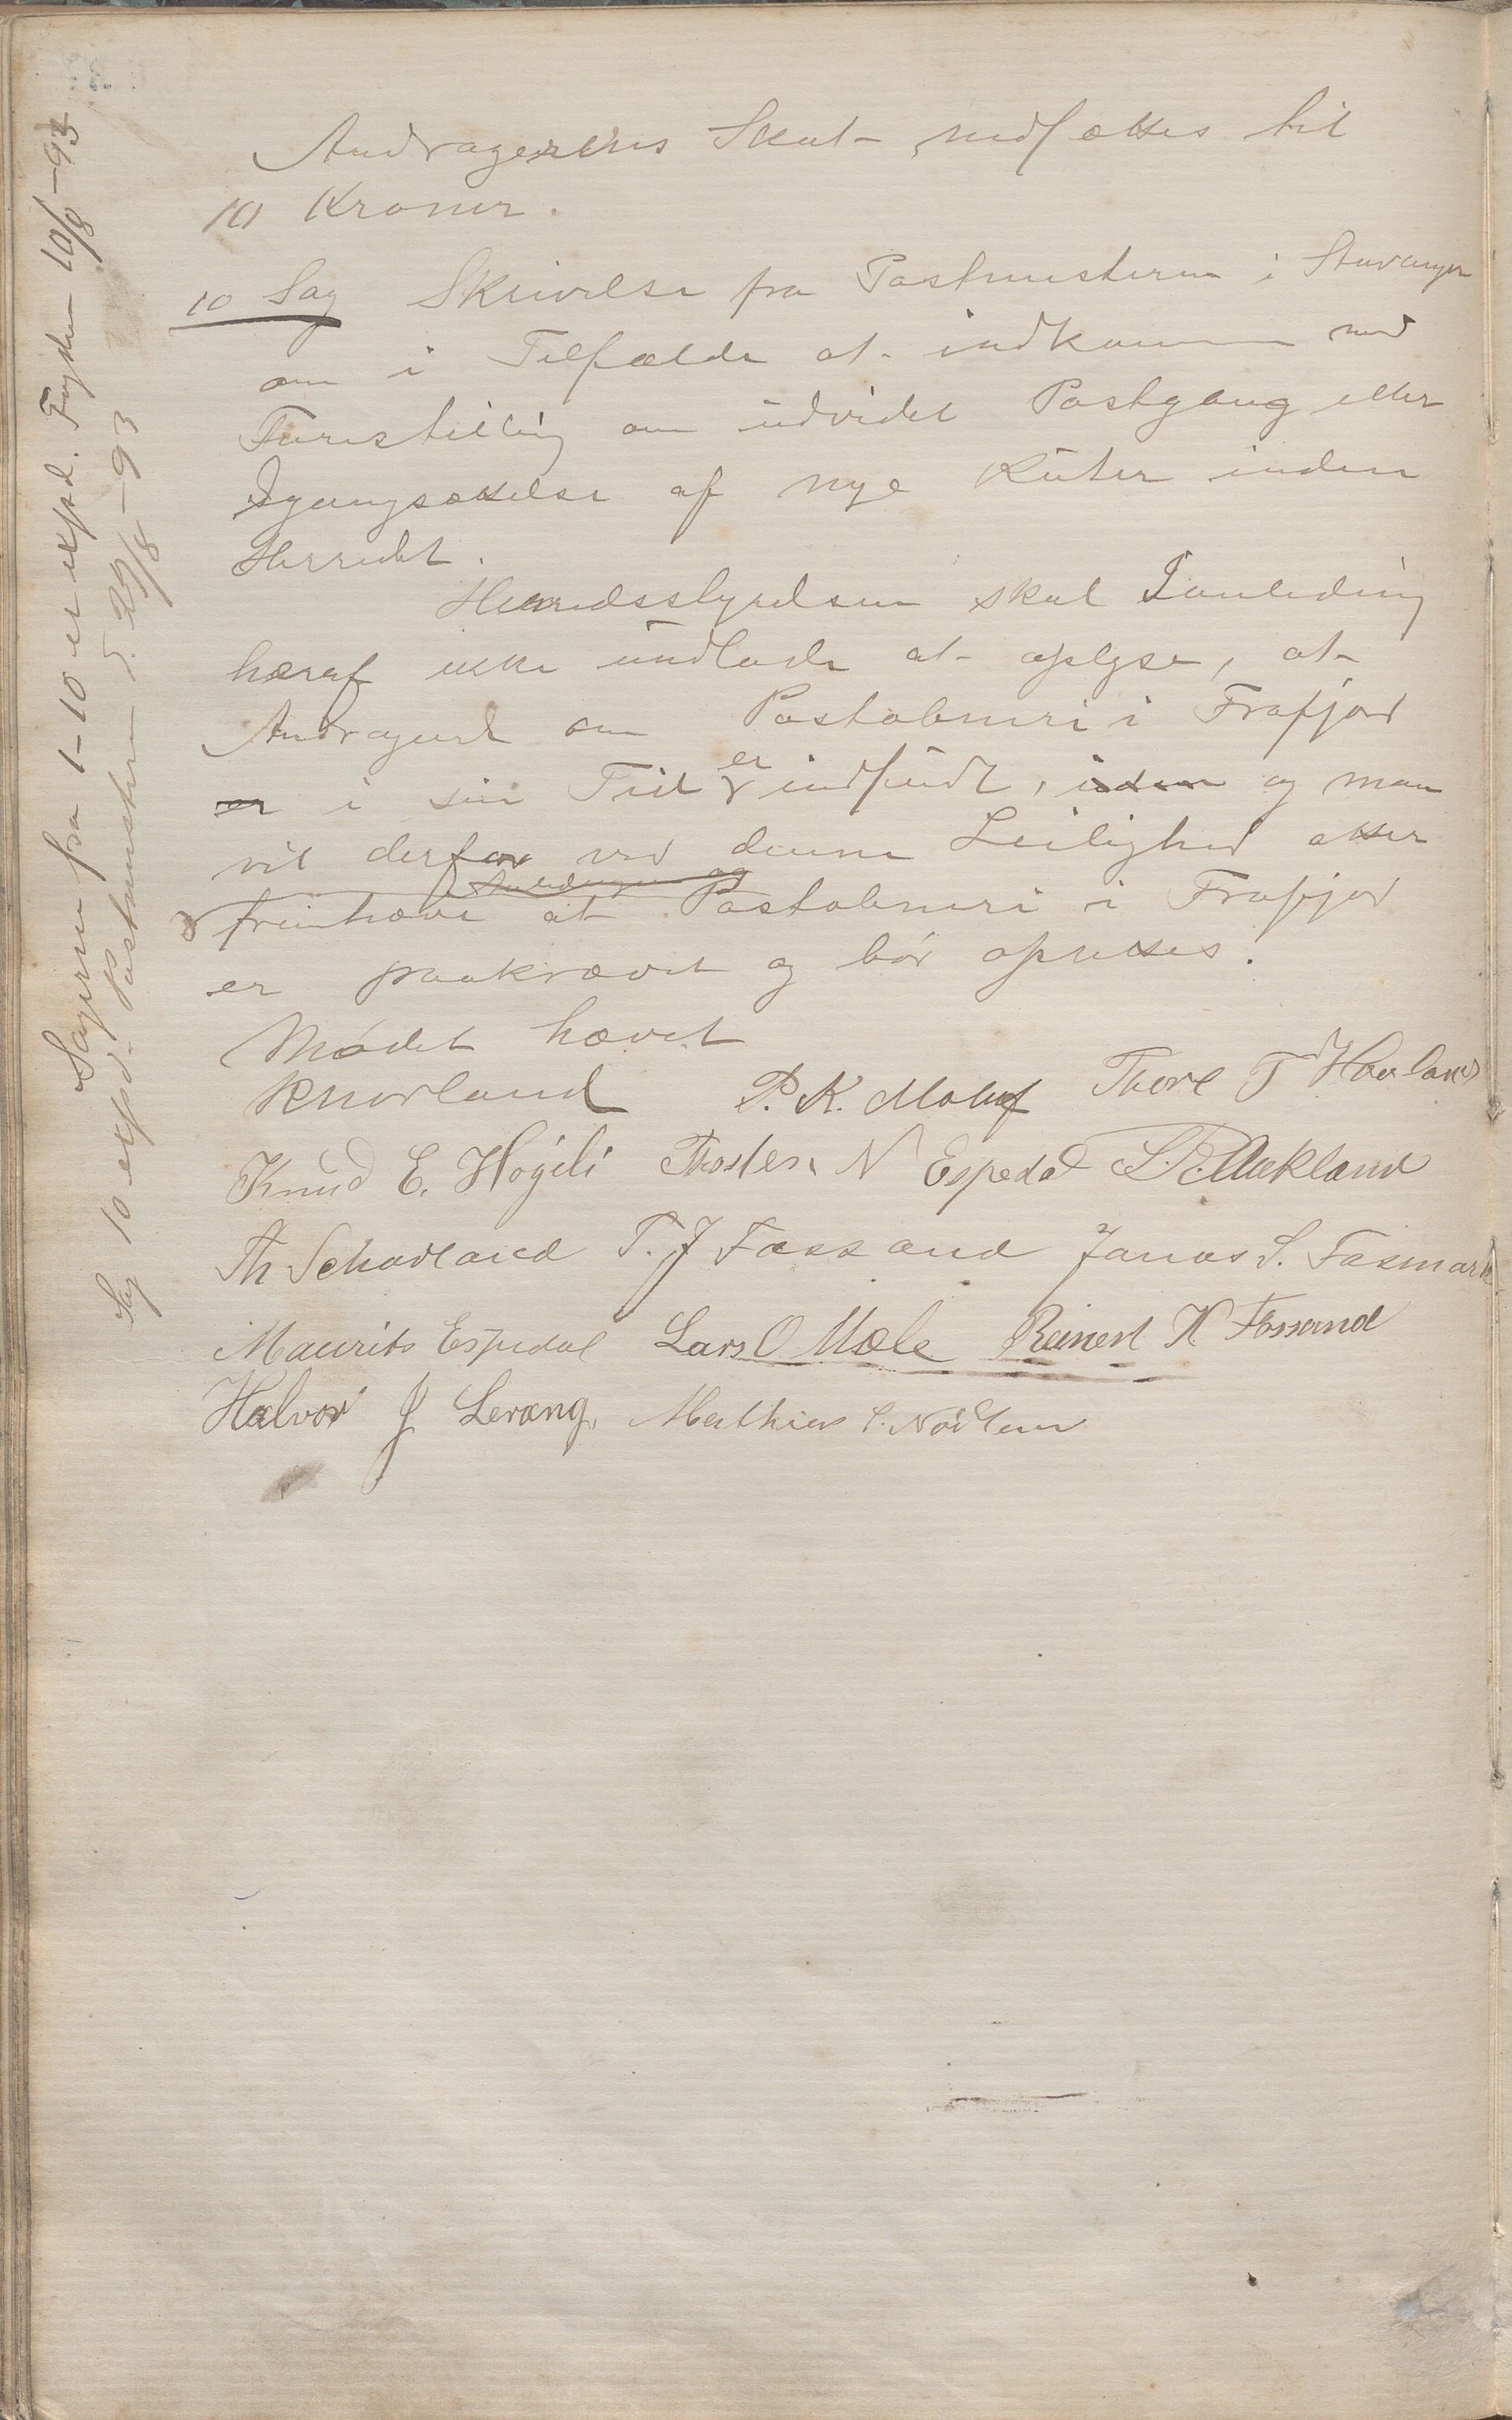 Andragerens Skat nedsættes til
10 Kroner.
10 Sag Skrivelse fra Postmesteren i Stavanger
om i Tilfælde at indkomme med
Forestilling om udvidet Postgang eller
Igangsættelse af nye Ruter inden
Herredet.
Herredsstyrelsen skal I anledning
heraf ikke undlade at oplyse, at
Andragende om Postaabneri i Frafjord
er i sin Tid er indsendt, og man
vil derfor ved denne Leilighed atter
fremhæve at Postaabneri i Frafjord
er paakrævet og bör oprettes.
Mödet hævet
P. K. Maluf Thore T Haaland
Knud E. Högeli Thosten N Espedal
Th Schavland T. J Fossand Jonas S. Fasmark
Maurits Espedal Lars O Mæle Reinert K Fossand
Halvor J Lerang. Mathias
Sagerne fra 1-10 er expd. Fogden 10/8-93
Sag 10 expd. Postmesteren d. 29/8-93